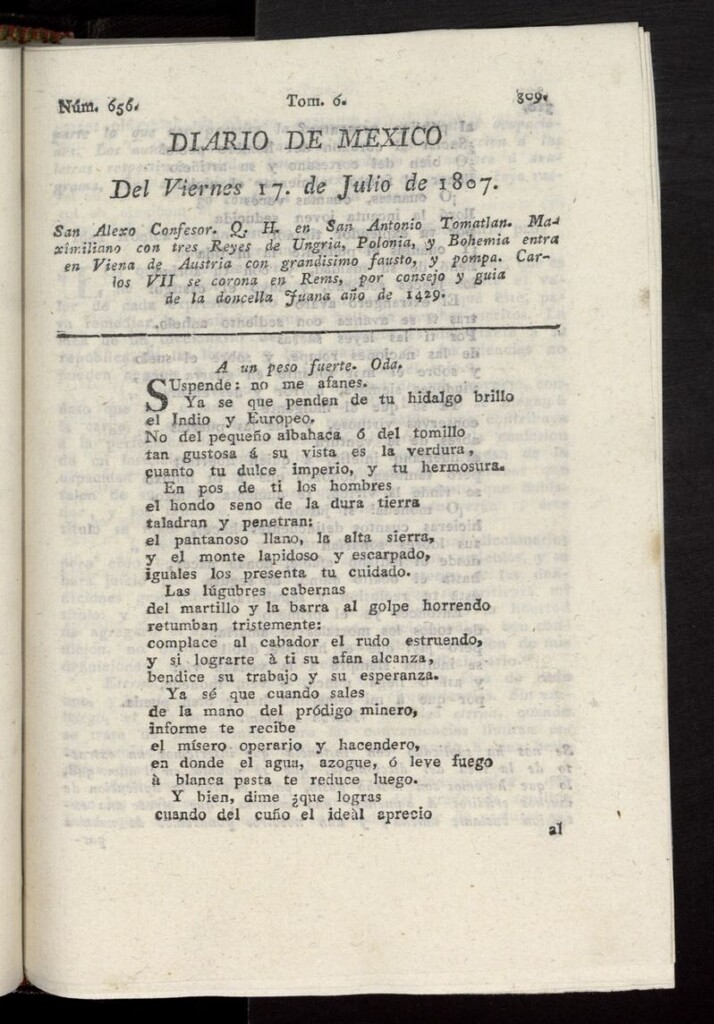 Núm. 656. Tom. 6. 309.
DIARIO DE MEXICO
Del Viernes 17. de Julio de 1807.
San Alexo Confesor. Q. H. en San Antonio Tomatlan. Ma-
ximiliano con tres Reyes de Ungria, Polonia, y Bohemia entra
en Viena de Austria con grandisimo fausto, y pompa. Car-
los VII se corona en Rems, por consejo y guia
de la doncella Juana año de 1429.
A un peso fuerte. Oda.
SUspende: no me afanes.
Ya se que penden de tu hidalgo brillo
el Indio y Europeo.
No del pequeño albahaca ó del tomillo
tan gustosa á su vista es la verdura,
cuanto tu dulce imperio, y tu hermosura.
En pos de ti los hombres
el hondo seno de la dura tierra
taladran y penetran:
el pantanoso llano, la alta sierra,
y el monte lapidoso y escarpado,
iguales los presenta tu cuidado.
Las lúgubres cabernas
del martillo y la barra al golpe horrendo
retumban tristemente:
complace al cabador el rudo estruendo,
y si lograrte à ti su afan alcanza,
bendice su trabajo y su esperanza.
Ya sé que cuando sales
de la mano del pródigo minero,
informe te recibe
el mísero operario y hacendero,
en donde el agua, azogue, ó leve fuego
à blanca pasta te reduce luego.
Y bien, dime ¿que logras
cuando del cuño el ideàl aprecio
al